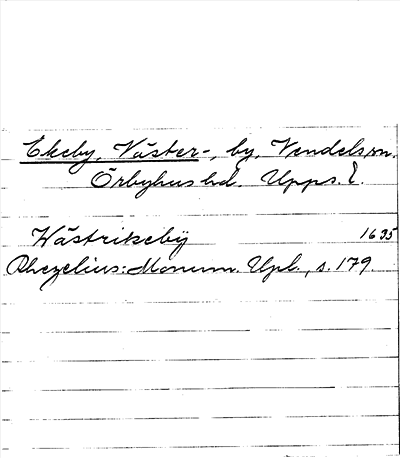 Ekeby, Väster-, by, Vendels sn.
Örbyhus hd. Upps. l.
Wästrikeby 1635
Rhezelius: Monum. Upl., s. 179.